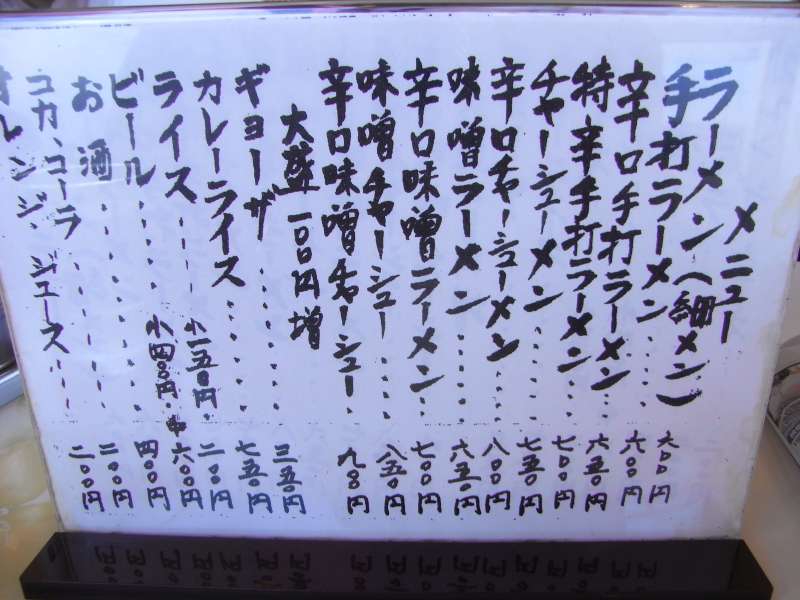 メニュー
ラーメン(細メン) 六〇〇円
手打ラーメン・・・・ 六〇〇円
辛口手打ラーメン・・ 六五〇円
特辛手打ラーメン・・ 七〇〇円
チャーシューメン・・・・ 七五〇円
辛口チャーシューメン・・ 八〇〇円
味噌ラーメン・・・・・ 六五〇円
辛口味噌ラーメン・・ 七〇〇円
味噌チャーシュー・・・・ 八五〇円
辛口味噌チャーシュー・ 九〇〇円
大盛 一〇〇円増
ギョーザ・・・・・ 三五〇円
カレーライス・・・・・ 七五〇円
ライス・・・・小一五〇円・ 二〇〇円
ビール・・・・小四〇〇円・中 六〇〇円
お酒・・・・・・・ 四〇〇円
コカ、コーラ・・・・・ 二〇〇円
オレンジ、ジュース・・・ 二〇〇円